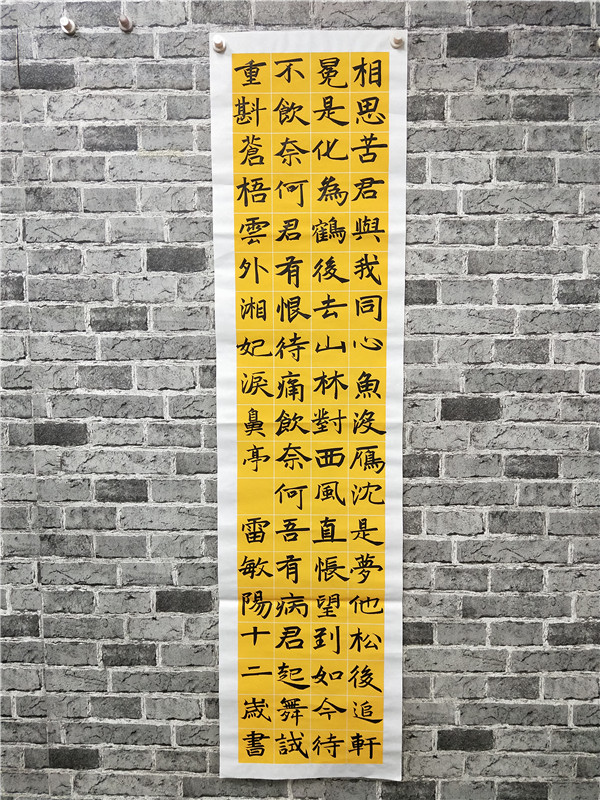 相思苦君與我同心魚沒鴈沈是夢他松後追軒
冕是化為鶴後去山林對西風直悵望到如今待
不飲奈何君有恨待痛飲奈何吾有病君起舞試
重斟蒼梧雲外湘妃淚鼻亭 雷敏陽十二歲書